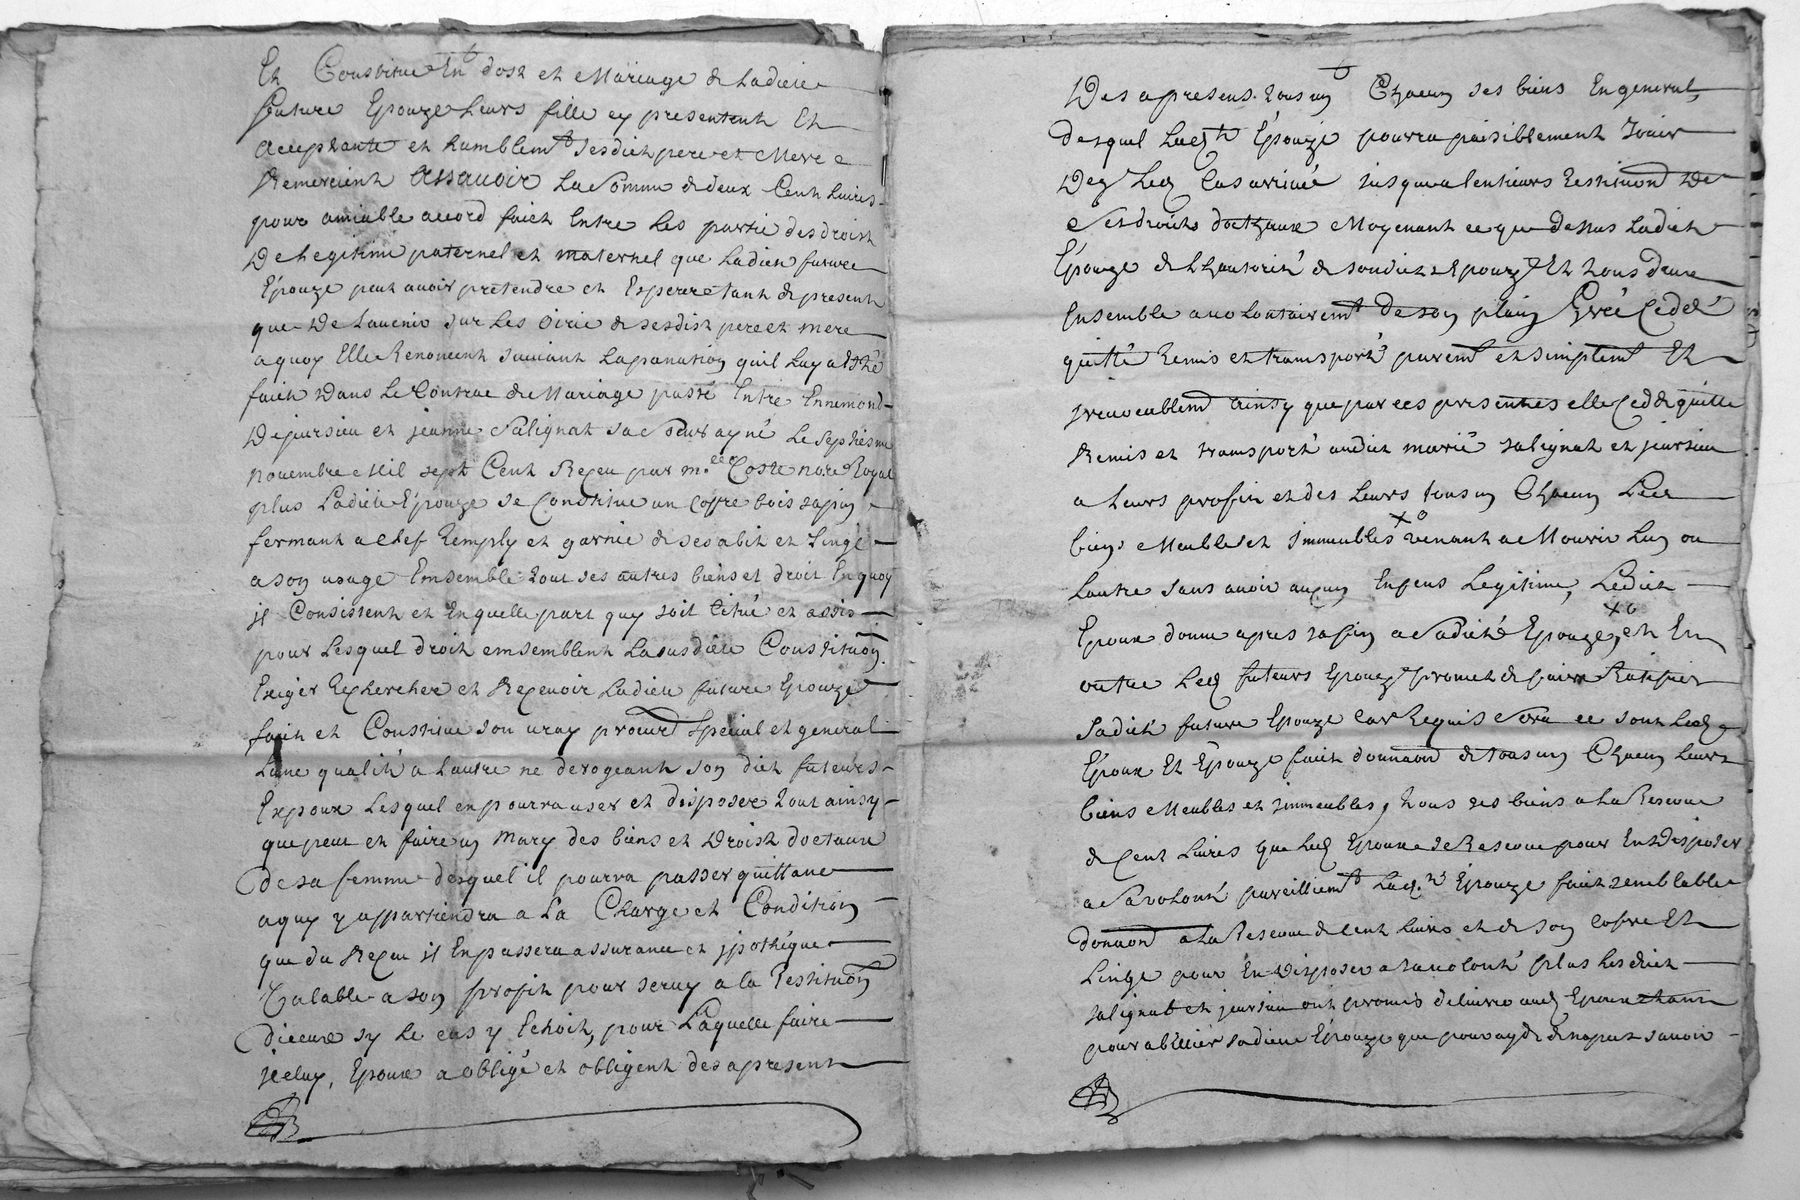 Et Constitue En dost et Mariage de Ladicte
future Epouze Leurs fille cy presentent Et
aceptante et humblemt sesdict pere et Mere
Remercient assauoir La somme de deux Cent Liures
pour amiable acord faict Entre Les partie des droist
De Legitime paternel et maternel que Ladicte future
Epouze peut auoir pretendre et Esperer tant de present
que De Lauenir sur Les de sesdist pere et mere
a quoy Elle Renoncent suiuant quil Luy a Esté
faict Dans Le Contrac de Mariage passé Entre Ennemond
Dejursieu et jeanne Salignat sa Soeur ayné Le septiesme
nouembre Mil sept Cent Reçeu par me Coste nore Royal
plus Ladicte Epouze se Constitue un Coffre bois sapin
fermant a Clef Remply et garnie de ses abit et Linge
a son usage Emsemble tout ses autres biens et droit En quoy
jl Consistent et En quelle part quy soit titué et assis
pour Lesquel droit emsemblent La susdicte Constituõn
Exiger Rechercher et Reçeuoir Ladicte future Epouze
faict et Constitue son uray procurr special et general
Lune qualité a Lautre ne derogeant son dict futeurs
Expoux Lesquel en pourra user et disposer tout ainsy
que peut et faire un Mary des biens et Droist doctaux
de sa femme desquel il pourra passer quittance
a quy y appartiendra a La Charge et Condition
que du Reçeu jl En passera assurance et jpothéque
Valable a son profit pour seruy a la Restituõn
dicceux sy Le cas y Echoit, pour Laquelle faire
jceluy, Epoux a obligé et obligent des apresent
Des apresens tous un Chacun ses biens En general,
desquel Ladte Epouze pourra paisiblement Jouir
Ledt Cas arriué jusqua Lentiers Restituõn De
Sesdroits doctzaux Moyenant ce que Dessus Ladict
Epouze de Lhautorité de soudict Epouze Et tous deux
Ensemble a uolontairemt de son plain Gré Cedé
quitté Remis et transporté puremt et simplemt Et
jreuocablemt ainsy que par ces presentes elle Ced de quitte
Remis et transporté audict marié Salignat et jursieu
a Leurs profit et des Leurs tous un Chacun Leur
biens Meubles et jmmeubles venant a Mourir Lun ou
Lautre sans auoir auqun Enfens Legitime, Ledict
Epoux donne apres sa fin a Sadicte Epouze, et En
outre Led futeurs Epoux promet de faire Ratifier
Sadict future Epouze Car Requis Sera ce sont Led
Epoux Et Epouze faict donnaõn de tous un Chacun Leurs
biens Meubles et jmmeubles, tous ses biens a La Reserue
de Cent Liures que Led Epoux se Reserue pour En Disposer
a Sa uolonté pareilliemt Ladte Epouze faict semblable
donaõn a La Reserue de Cent Liures et de son Cofre Et
Linge pour En Disposer a sa uolonté plus Lesdict
Salignat et jursieu ont promis deliure aud Epoux tant
pour abillier sadicte Epouze que pour ayde de sauoir